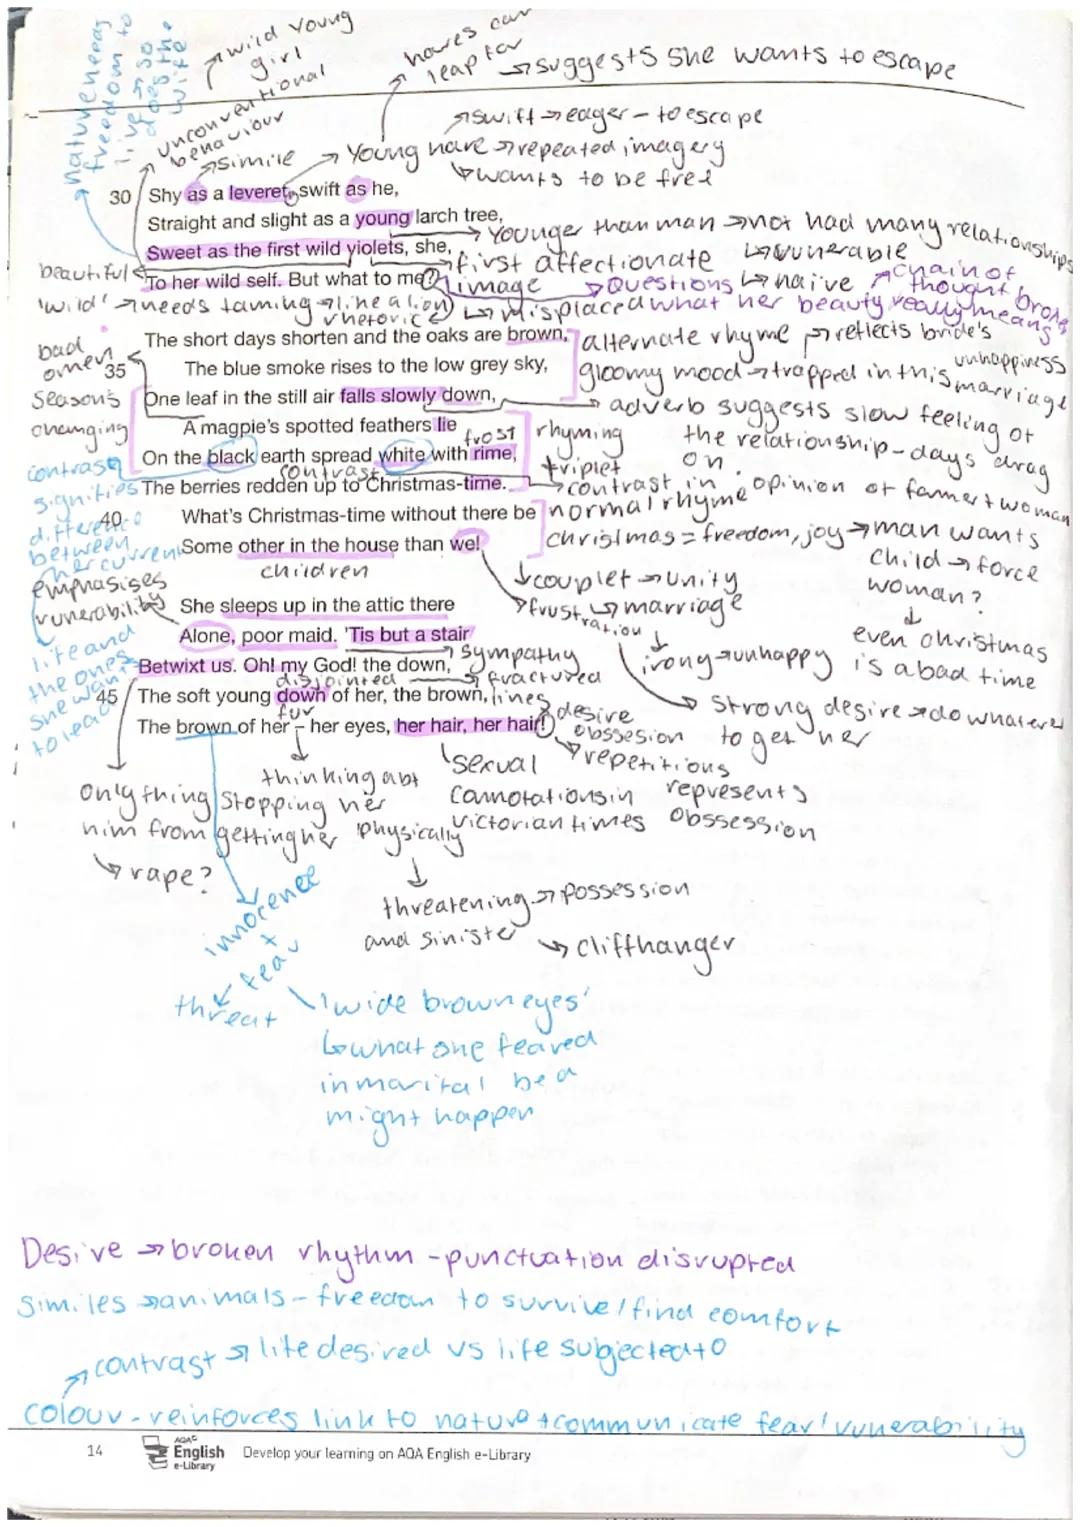 wild young girl
hares can leap far
→ suggests she wants to escape
nature needs freedom to live → so does the wife
unconventional behaviour
→ simile
→ swift → eager – to escape
→ Young hare → repeated imagery
↳ wants to be free
30 Shy as a leveret, swift as he,
Straight and slight as a young larch tree,
→ Younger than man → not had many relationships
Sweet as the first wild violets, she,
→ first affectionate image
↳ vunerable
↳ naive
beautiful
To her wild self. But what to me?
→ Questions
chain of thought broken
'wild' → needs taming → (like a lion)
rhetoric
↳ misplaced what her beauty really means
The short days shorten and the oaks are brown,
alternate rhyme → reflects bride's unhappiness
bad omen
35 The blue smoke rises to the low grey sky,
gloomy mood → trapped in this marriage
seasons changing
One leaf in the still air falls slowly down,
→ adverb suggests slow feeling of the relationship – days drag on.
A magpie's spotted feathers lie
frost
rhyming triplet
On the black earth spread white with rime,
contrast
contrast
The berries redden up to Christmas-time.
→ contrast in opinion of farmer + woman
signifies difference between her current life and the ones she wants to lead
40 What's Christmas-time without there be
normal rhyme
Some other in the house than we!
christmas = freedom, joy → man wants child → force woman?
children
↓ couplet → unity
↳ marriage
→ frustration
irony → unhappy
even christmas is a bad time
emphasises vunerability
She sleeps up in the attic there
Alone, poor maid. 'Tis but a stair
→ sympathy
Betwixt us. Oh! my God! the down,
disjointed → fractured lines
45 The soft young down of her, the brown,
fur
→ strong desire → do whatever to get her
The brown of her – her eyes, her hair, her hair!
desire obssesion
→ repetitions represents obssession
sexual connotations in victorian times
thinking abt her physically
only thing stopping him from getting her
↳ rape?
↓
threatening → possession
and sinister
↳ cliffhanger
innocence + fear
threat
'wide brown eyes'
↳ what she feared in marital bed might happen
Desire → broken rhythm – punctuation disrupted
similes → animals – freedom to survive / find comfort
→ contrast → life desired vs life subjected to
colour – reinforces link to nature + communicate fear / vunerability
14
AQA
English
e-Library
Develop your learning on AQA English e-Library